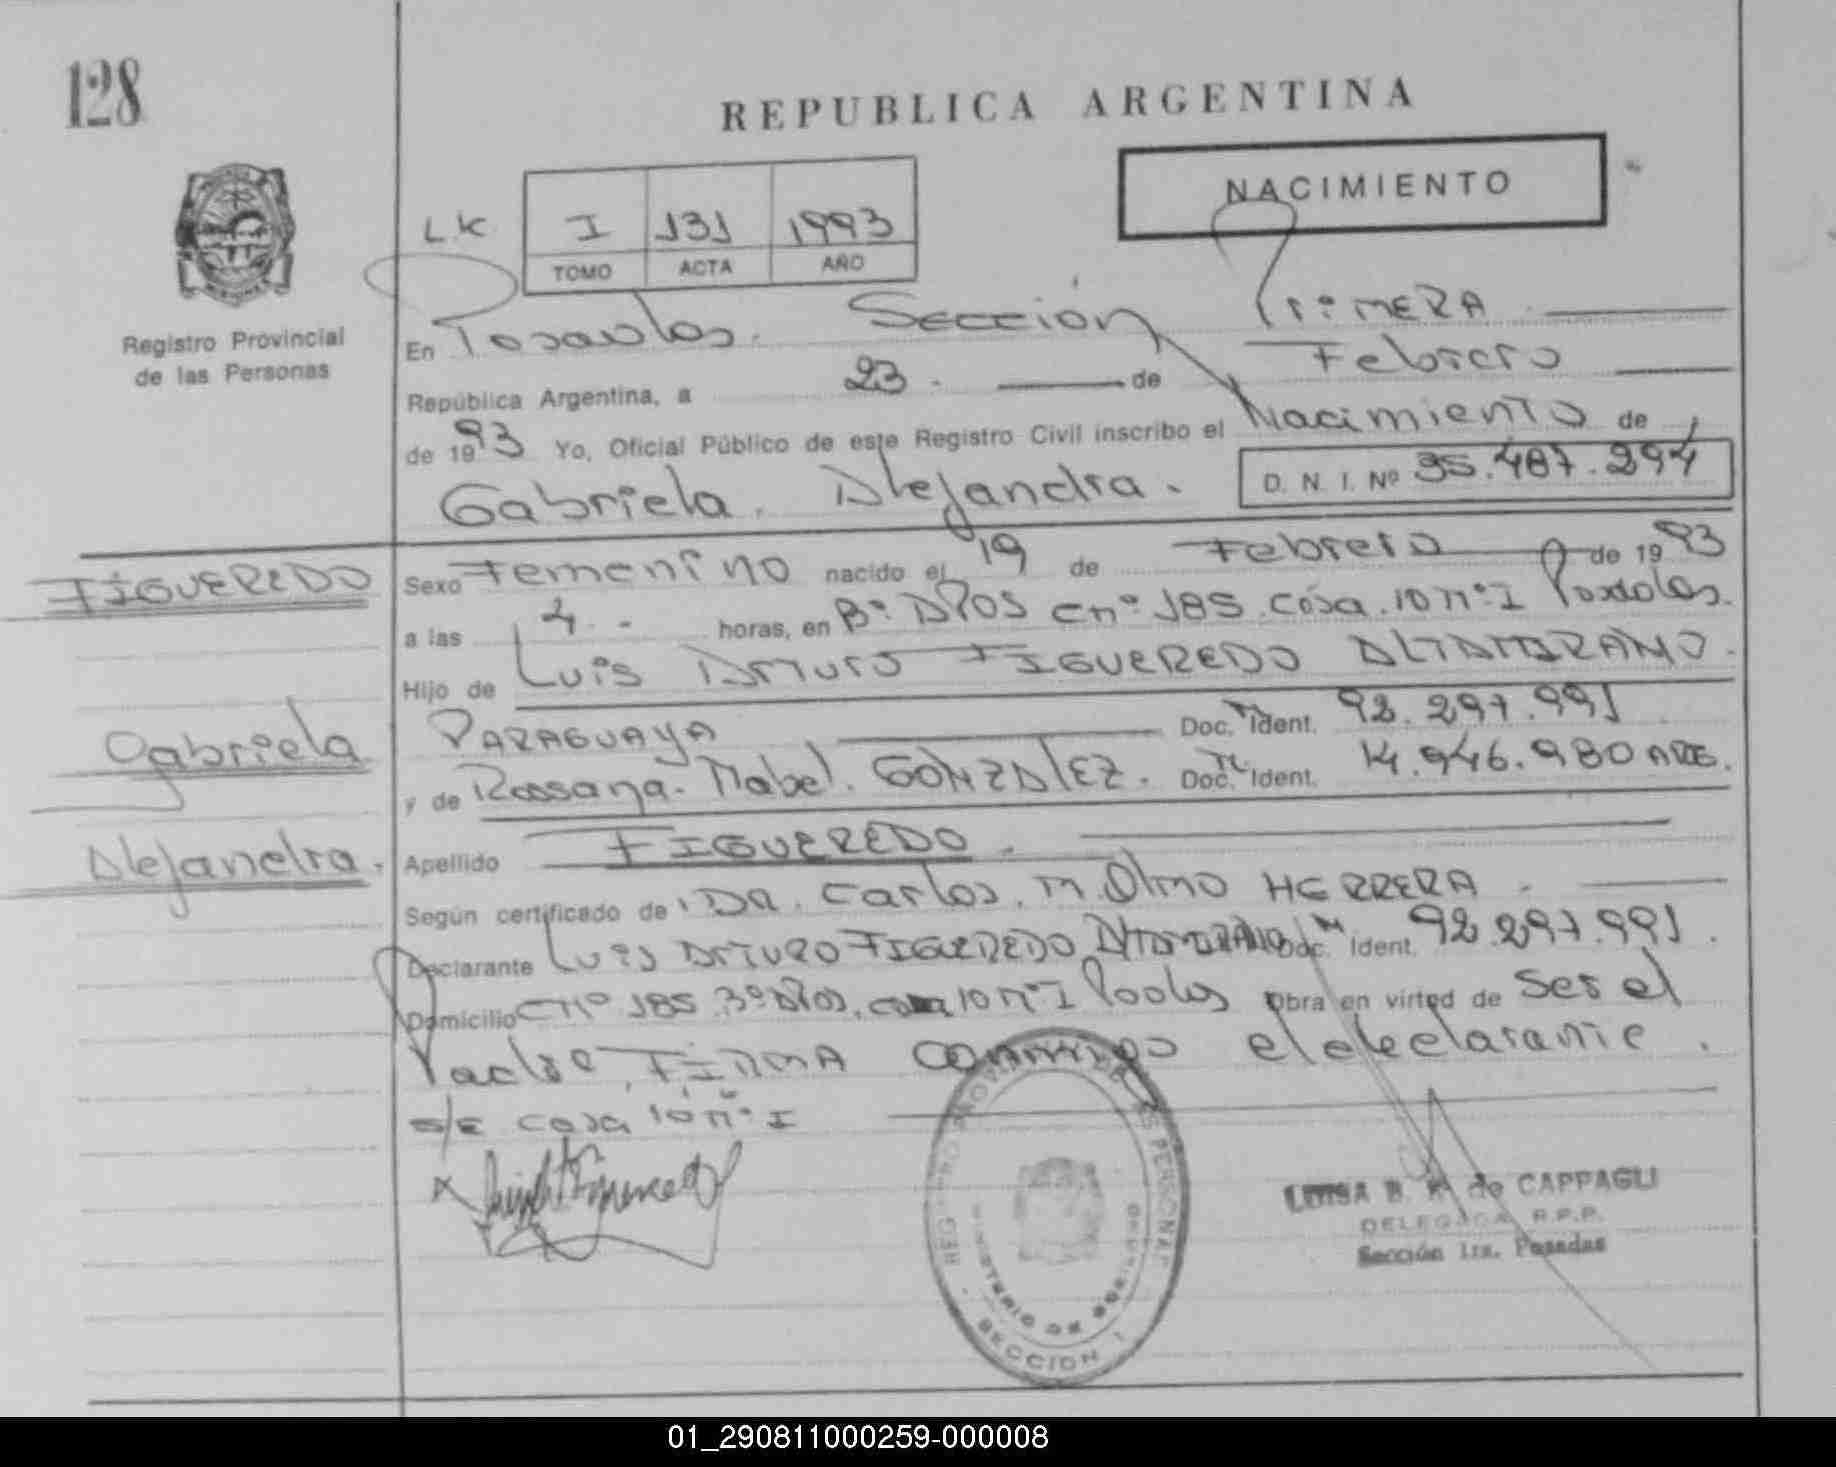 128
REPUBLICA ARGENTINA
NACIMIENTO
L.K
I 131 1993
TOMO ACTA AÑO
Registro Provincial
de las Personas
En Posadas. Sección Primera
República Argentina, a 23 de Febrero
de 1993 Yo, Oficial Público de este Registro Civil inscribo el Nacimiento de
Gabriela. Alejandra. D. N. I. Nº 35.487.294
FIGUEREDO
Gabriela
Alejandra.
Sexo Femenino nacido el 19 de Febrero de 1993
a las 4 horas, en Bº APOS CHº 185 casa 10 nº I Posadas.
Hijo de Luis Arturo FIGUEREDO ALTAMIRANO.
PARAGUAYA Doc. Ident. 92.297.991
y de Rossana Mabel. GONZALEZ. Doc. Ident. 14.946.980 ARG.
Apellido FIGUEREDO.
Según certificado de Dr. Carlos. M. Olmo HERRERA
Declarante Luis ARTURO FIGUEREDO ALTAMIRANO Doc. Ident. 92.297.991.
Domicilio CHº 185 Bº APOS, casa 10 nº I Posdas Obra en virtud de ser el
Padre, FIRMA conmigo el declarante.
S/E casa 10 nº I
LUISA B. de CAPPAGLI
DELEGADA R.P.P.
Sección 1ra. Posadas
REGISTRO PROVINCIAL DE LAS PERSONAS
MINISTERIO DE GOBIERNO
SECCION 1
01_290811000259-000008